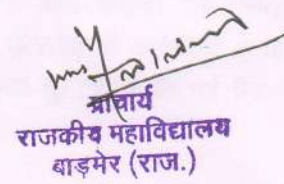 प्राचार्य
राजकीय महाविद्यालय
बाड़मेर (राज.)